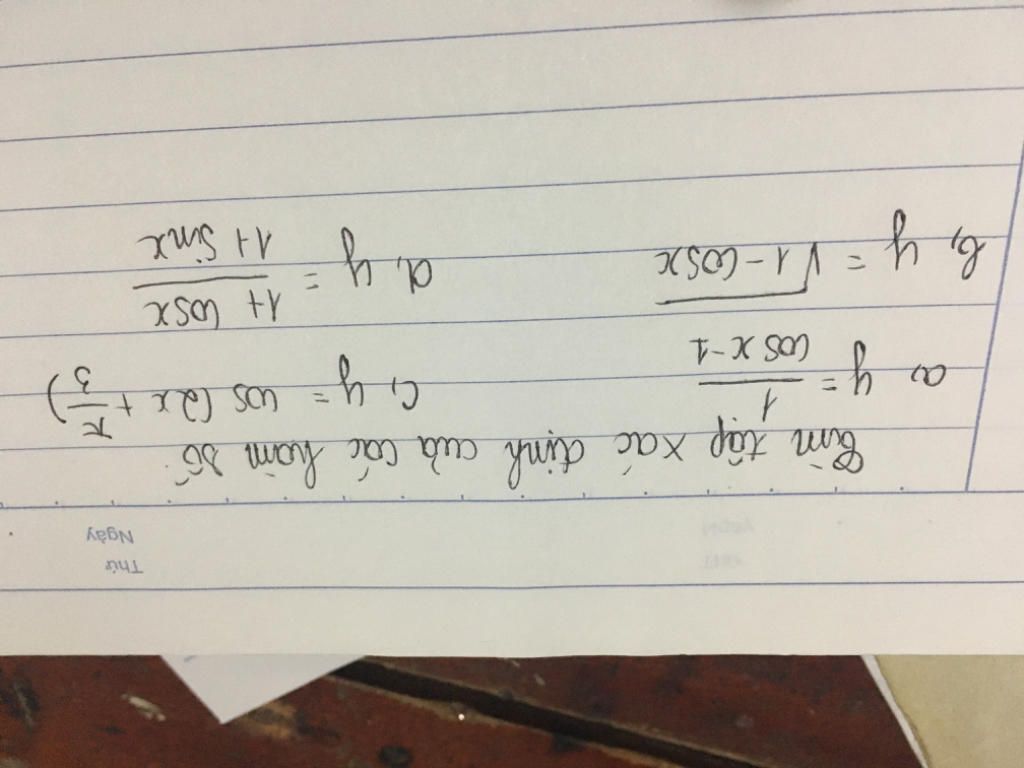 Thứ
Ngày
Tìm tập xác định của các hàm số
a, y = 1/(cos x - 1)
c, y = cos (2x + π/3)
b, y = √(1 - cosx)
d, y = (1 + cosx)/(1 + sinx)